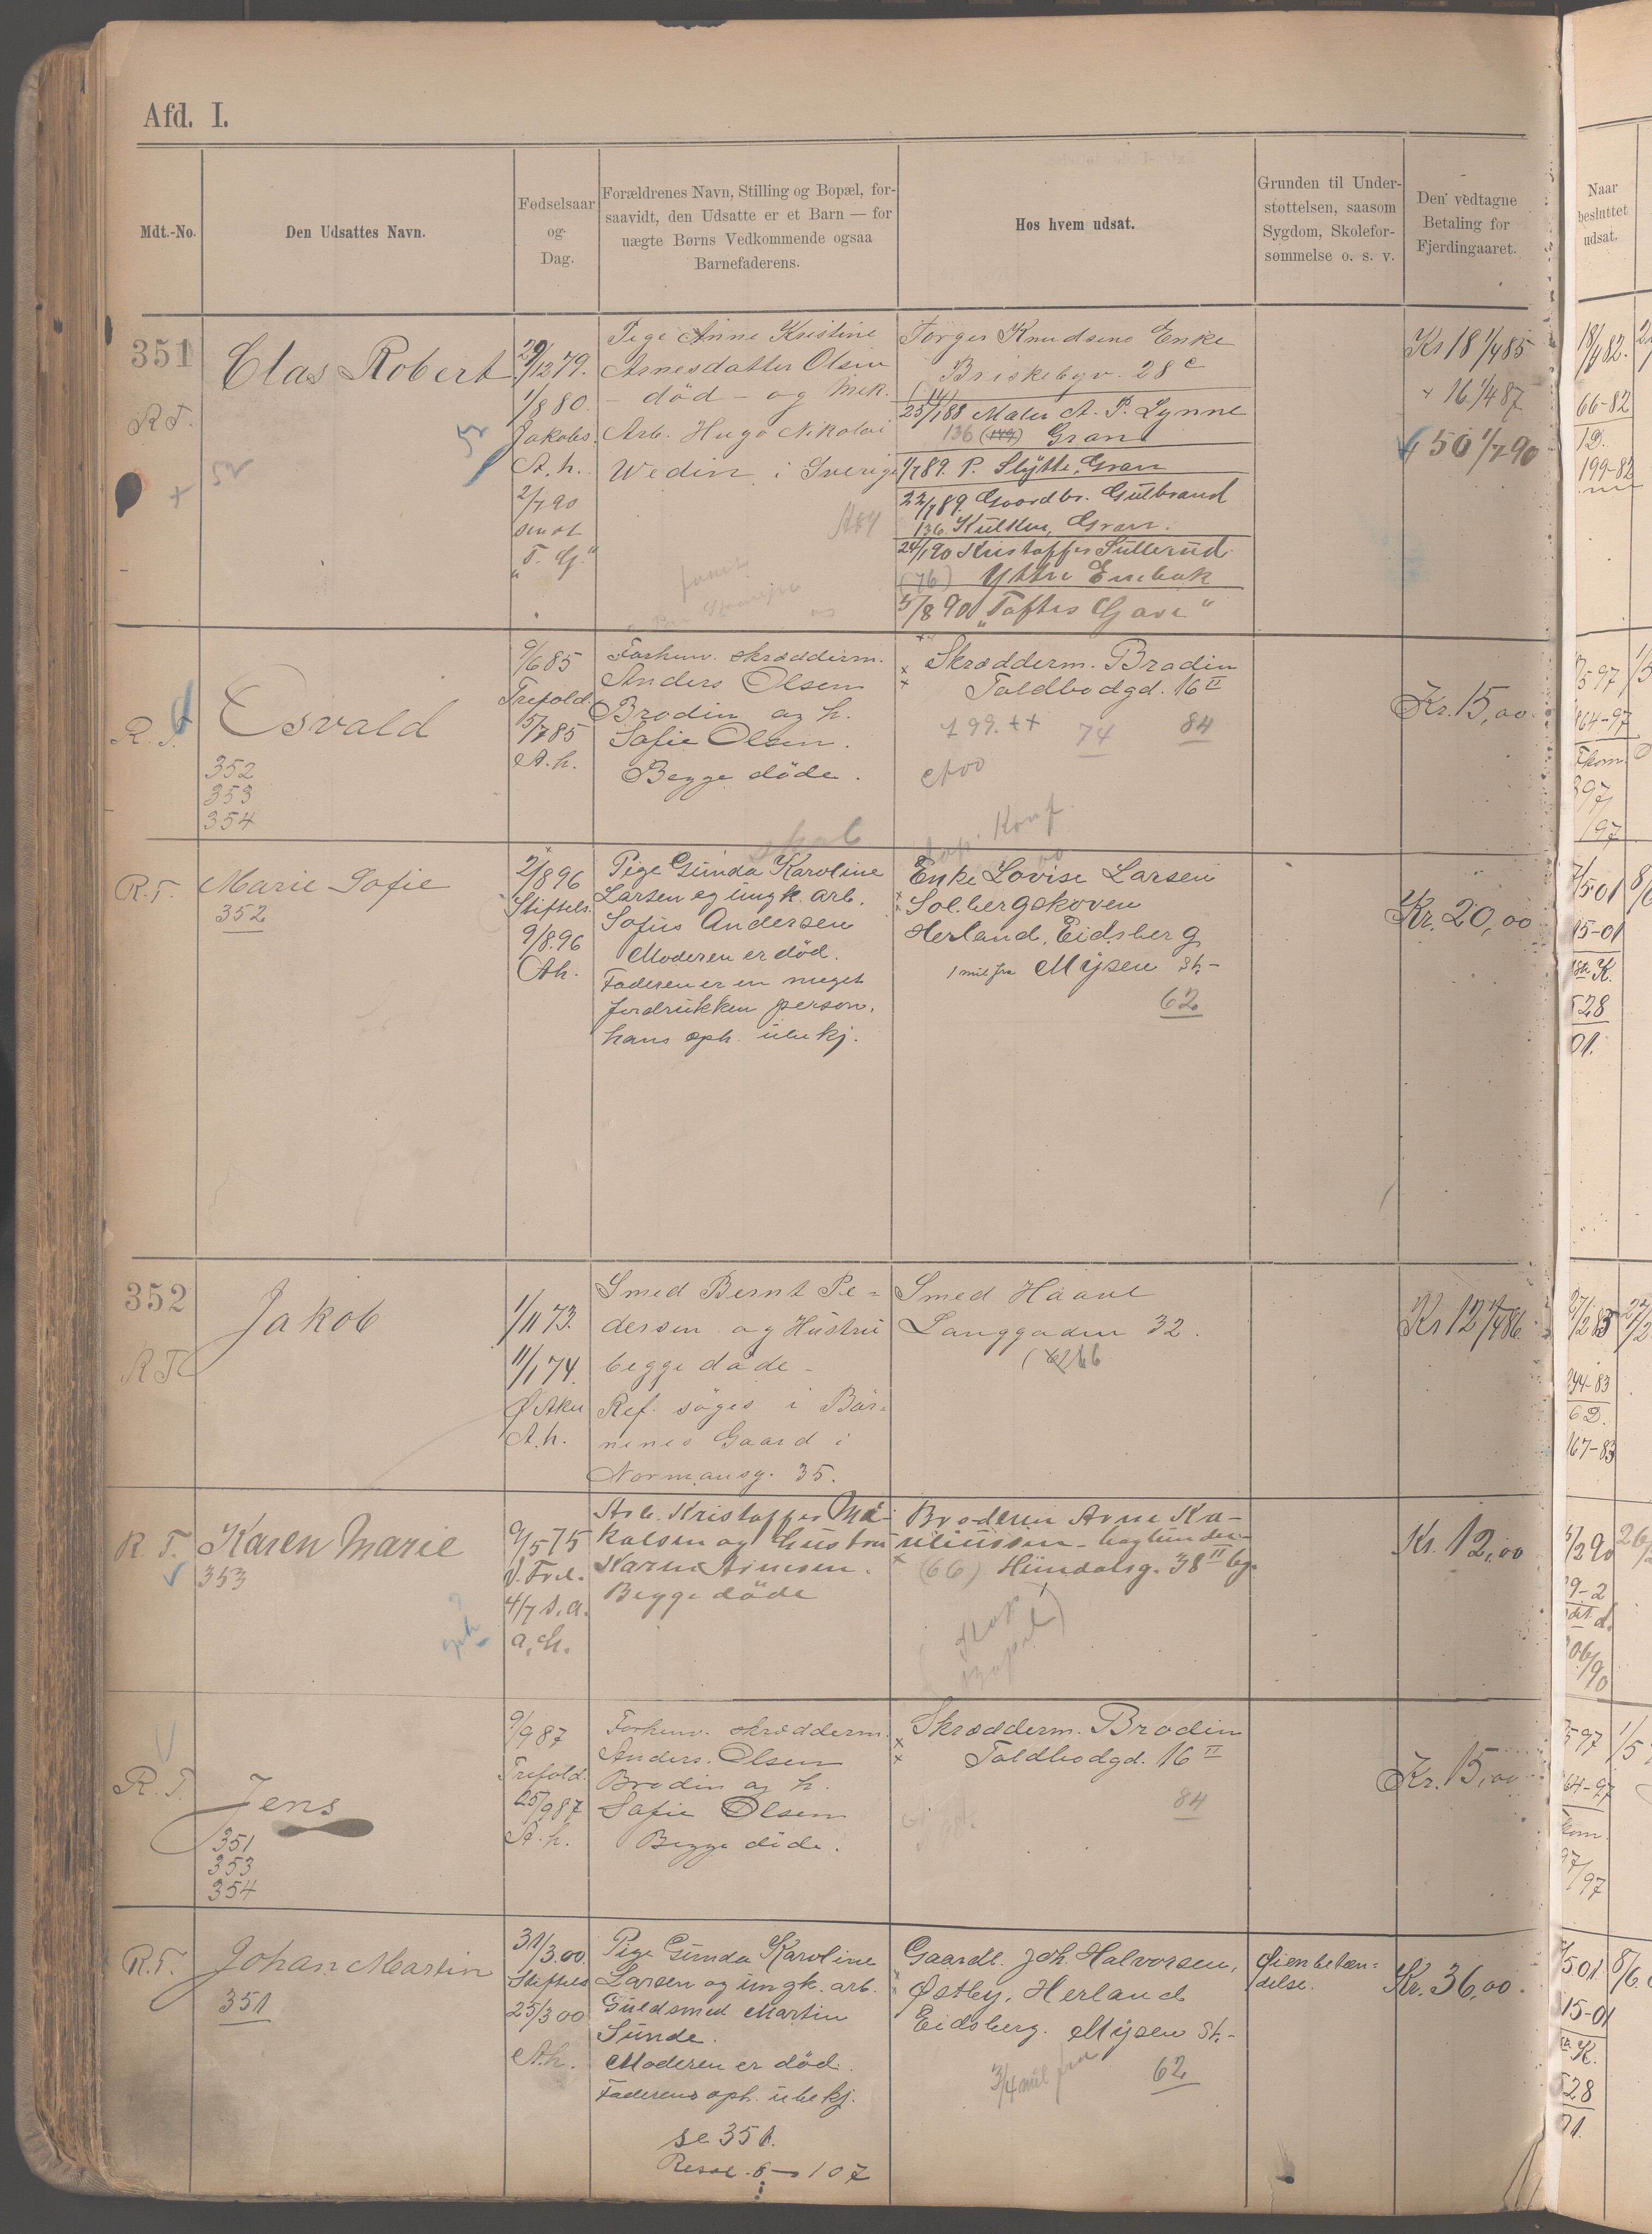 Afd. I.
Mdt.-No.
Den Udsattes Navn.
Fødselsaar
og
Dag.
Forældrenes Navn, Stilling og Bopæl, for-
saavidt, den Udsatte er et Barn — for
uægte Børns Vedkommende ogsaa
Barnefaderens.
Hos hvem udsat.
Grunden til Under-
støttelsen, saasom
Sygdom, Skolefor-
sømmelse o. s. v.
Den vedtagne
Betaling for
Fjerdingaaret.
Naar
besluttet
udsat.
351
R.T.
Clas Robert
29/12 79.
1/8 80.
Jakobs.
A. h.
2/7 90
"T. G."
Pige Anne Kristine
Arnesdatter Olsen
- död - og Mek.
Arb. Hugo Nikolai
Wedin i Sverige
Torger Knudsens Enke
Briskebyv. 28 c
25/1 88 Maler A. P. Lynne
136 Gran
1/7 89. P. Slytte, Gran
22/7 89. Gaardbr. Gulbrand
136. Gran.
24/1 90 Kristoffer Sutterud
(76) Yttre Enebak
5/8 90 "Toftes Gave"
Kr 18 1/4 85
" 16 1/4 87
" 50 1/7 90
18/4 82.
66-82
199-82
R. T.
Esvald
352
353
354
9/6 85
Trefold.
5/7 85
A. h.
Forhenv. skrædderm.
Anders Olsen
Brodin og h.
Sofie Olsen.
Begge döde.
Skrædderm. Brodin
Toldbodgd. 16 II
74 84
Kr. 15,00.
R.T.
Marie Sofie
352
2/8 96
Stiftels.
9/8.96
Ah.
Pige Gunda Karoline
Larsen og ungk. arb.
Sofus Andersen
Moderen er död.
Faderen er en meget
fordrukken person,
hans oph. ubekj.
Enke Lovise Larsen
Solbergskoven
Herland, Eidsberg
1 mil fra Mysen St.-
62
Kr. 20,00
352
R T.
Jakob
1/11 73.
11/1 74.
A. h.
Smed Bernt Pe-
dersen og Hustru
begge döde -
Ref. söges i Bör-
nenes Gaard i
Normansg. 35.
Smed Haave
Langgaden 32.
Kr 12 1/4 86
R. T.
Karen Marie
353
9/5 75
4/7 s.a.
a. h.
Arb. Kristoffer Mi-
kalsen og hustru
Karen Arnesen.
Begge döde
Broderen Arne Ka-
(66) Hundalsg. 38 II
Kr. 12,00
R. T.
Jens
351
353
354
9/9 87
Trefold.
25/9 87
A. h.
Forhenv. skrædderm.
Anders Olsen
Brodin og h.
Sofie Olsen
Begge döde.
Skrædderm. Brodin
Toldbodgd. 16 II
84
Kr. 15,00
R.T.
Johan Martin
351
31/3.00.
Stiftels
25/3 00
A.h.
Pige Gunda Karoline
Larsen og ungk. arb.
Guldsmed Martin
Sunde.
Moderen er död.
Faderens oph. ubekj.
se 351.
Gaardl. Joh. Halvorsen,
Østby, Herland
Eidsberg. Mysen St.-
3/4 mil fra
62
Øienbetæn-
delse.
Kr. 36,00.